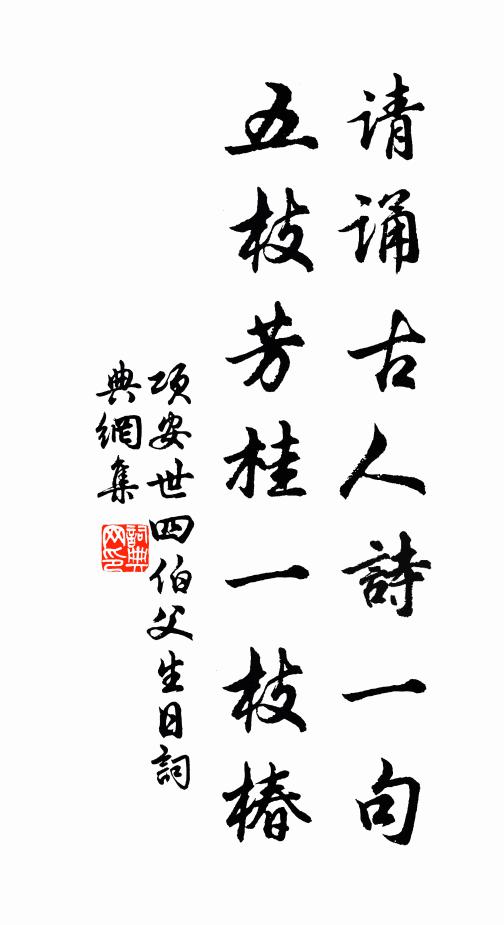 请诵古人詩一句
五枝芳桂一枝椿
项安世四伯父生日詞
典網集
詞典
网印